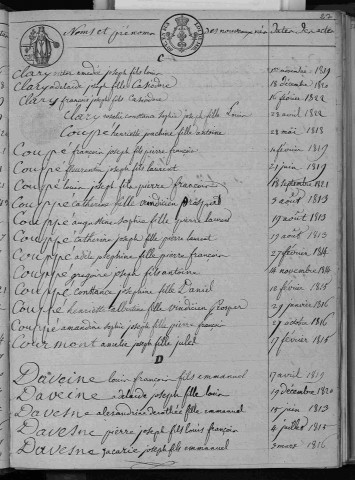 82
Noms et prénoms des nouveaux nés dates des actes
C
Clary André joseph fils louis novembre 1819
Clary adelaide joseph fille Casiodre 18 décembre 1820
Clary françois joseph fils Casiodre 16 février 1822
Clary constance Sophie joseph fille Louis 22 avril 1822
Couppé henriette joachine fille antoine 22 mai 1818
Couppé françois joseph fils pierre françois février 1819
Couppé florentin joseph fils laurent 21 juin 1819
Couppé louis joseph fils pierre françois 18 septembre 1821
Couppé catherine fille vindicien Prosper 3 août 1813
Couppé augustine sophie fille pierre laurent 19 août 1813
Couppé catherine joseph fille pierre laurent 19 août 1813
Couppé adèle josephine fille pierre françois 27 février 1814
Couppé gregoire joseph fils antoine 14 novembre 1814
Couppé constance josephine fille Daniel 12 février 1815
Couppé henriette albertine fille vindicien Prosper 29 janvier 1816
Couppé amandine sophie joseph fille pierre françois 27 octobre 1816
Courmont amelie joseph fille jules 17 février 1815
D
Daveine louis françois fils emmanuel 17 avril 1819
Daveine adelaïde joseph fille louis 19 décembre 1820
Davesne alexandrine dorothée fille emmanuel 15 juin 1813
Davesne pierre joseph fils louis françois 4 juillet 1815
Davesne zacarie joseph fils emmanuel 3 mars 1816